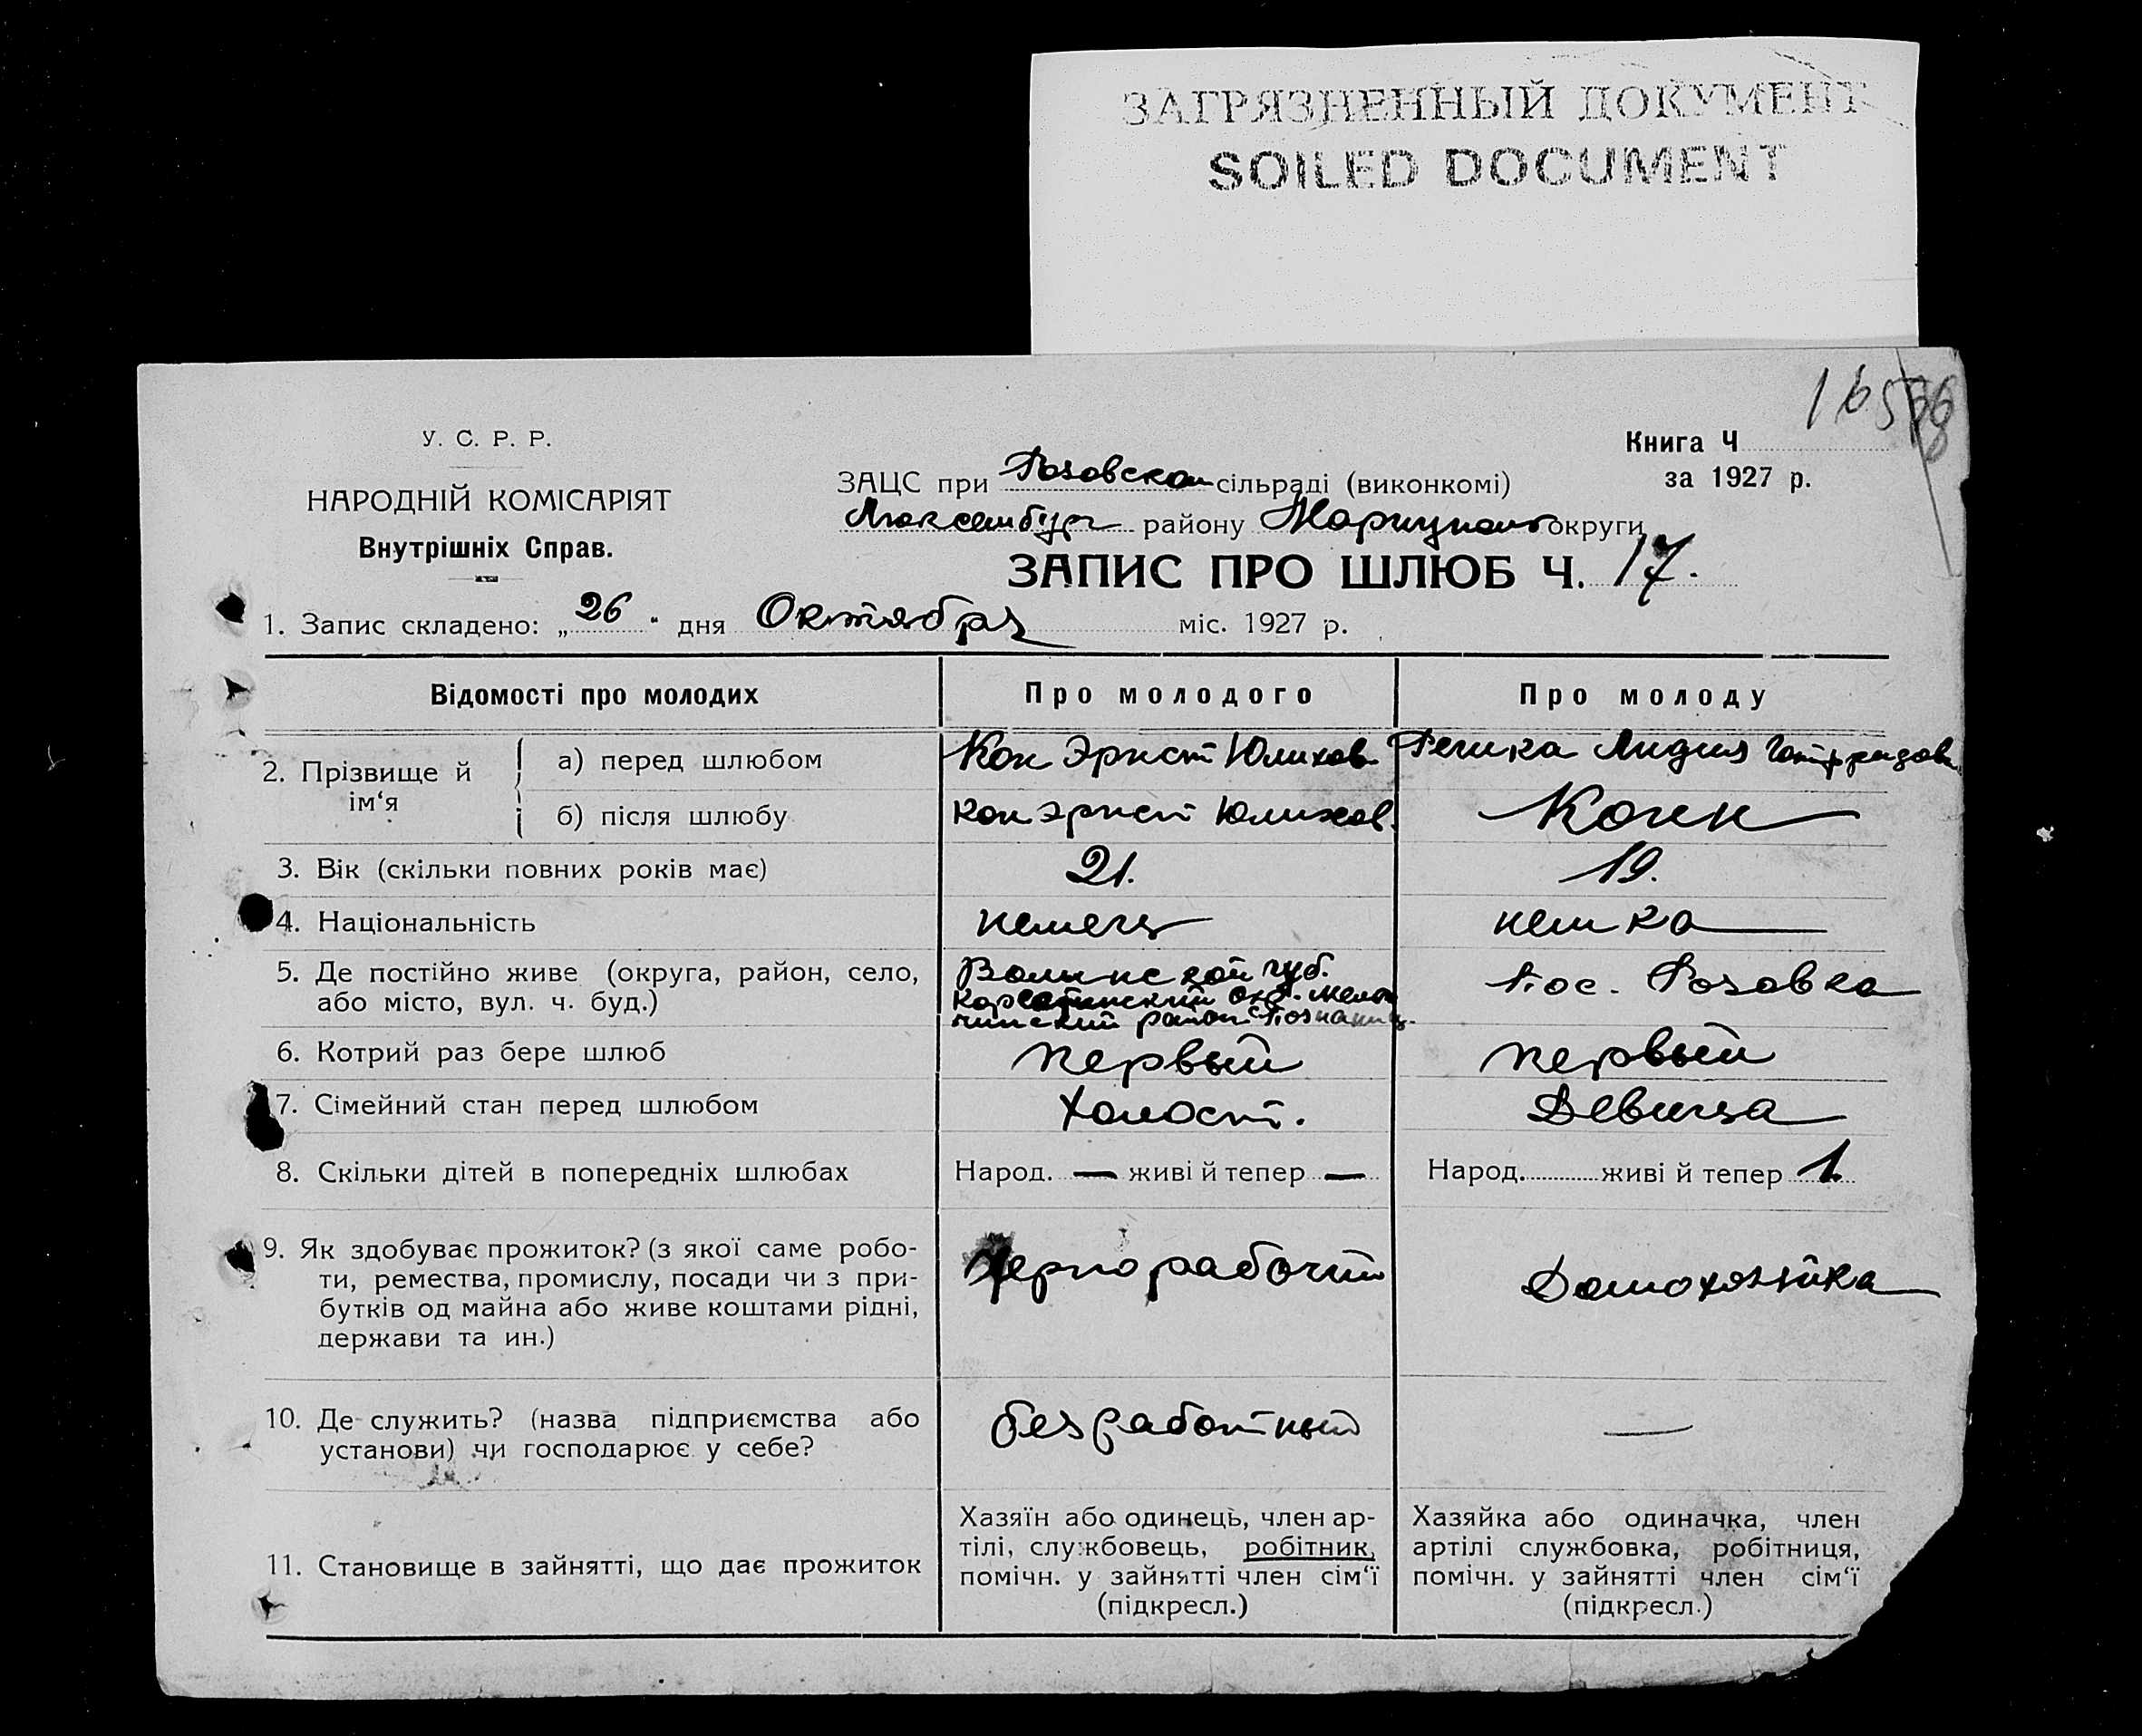 ЗАГРЯЗНЕННЫЙ ДОКУМЕНТ
SOILED DOCUMENT
У. С. Р. Р.
НАРОДНІЙ КОМІСАРІЯТ
Внутрішніх Справ.
Книга Ч
за 1927 р.
ЗАЦС при Розовском сільраді (виконкомі)
Люксембург району Мариуполь округи
ЗАПИС ПРО ШЛЮБ Ч. 17.
1. Запис складено: „26“ дня Октября міс. 1927 р.
Відомості про молодих
Про молодого
Про молоду
2. Прізвище й ім‘я
а) перед шлюбом
Кон Эрнст Юлиусов
Лидия
б) після шлюбу
Кон Эрнст
Конн
3. Вік (скільки повних років має)
21.
19.
4. Національність
немец
немка
5. Де постійно живе (округа, район, село,
або місто, вул. ч. буд.)
Волынской губ.
район
пос. Розовка
6. Котрий раз бере шлюб
первый
первый
7. Сімейний стан перед шлюбом
Холост.
Девица
8. Скільки дітей в попередніх шлюбах
Народ. — живі й тепер —
Народ. живі й тепер 1.
9. Як здобуває прожиток? (з якої саме робо-
ти, ремества, промислу, посади чи з при-
бутків од майна або живе коштами рідні,
держави та ин.)
Чернорабочий
Домохозяйка
10. Де служить? (назва підприємства або
установи) чи господарює у себе?
безработный
—
11. Становище в зайнятті, що дає прожиток
Хазяїн або одинець, член ар-
тілі, службовець, робітник,
помічн. у зайнятті член сім‘ї
(підкресл.)
Хазяйка або одиначка, член
артілі службовка, робітниця,
помічн. у зайнятті член сім‘ї
(підкресл.)